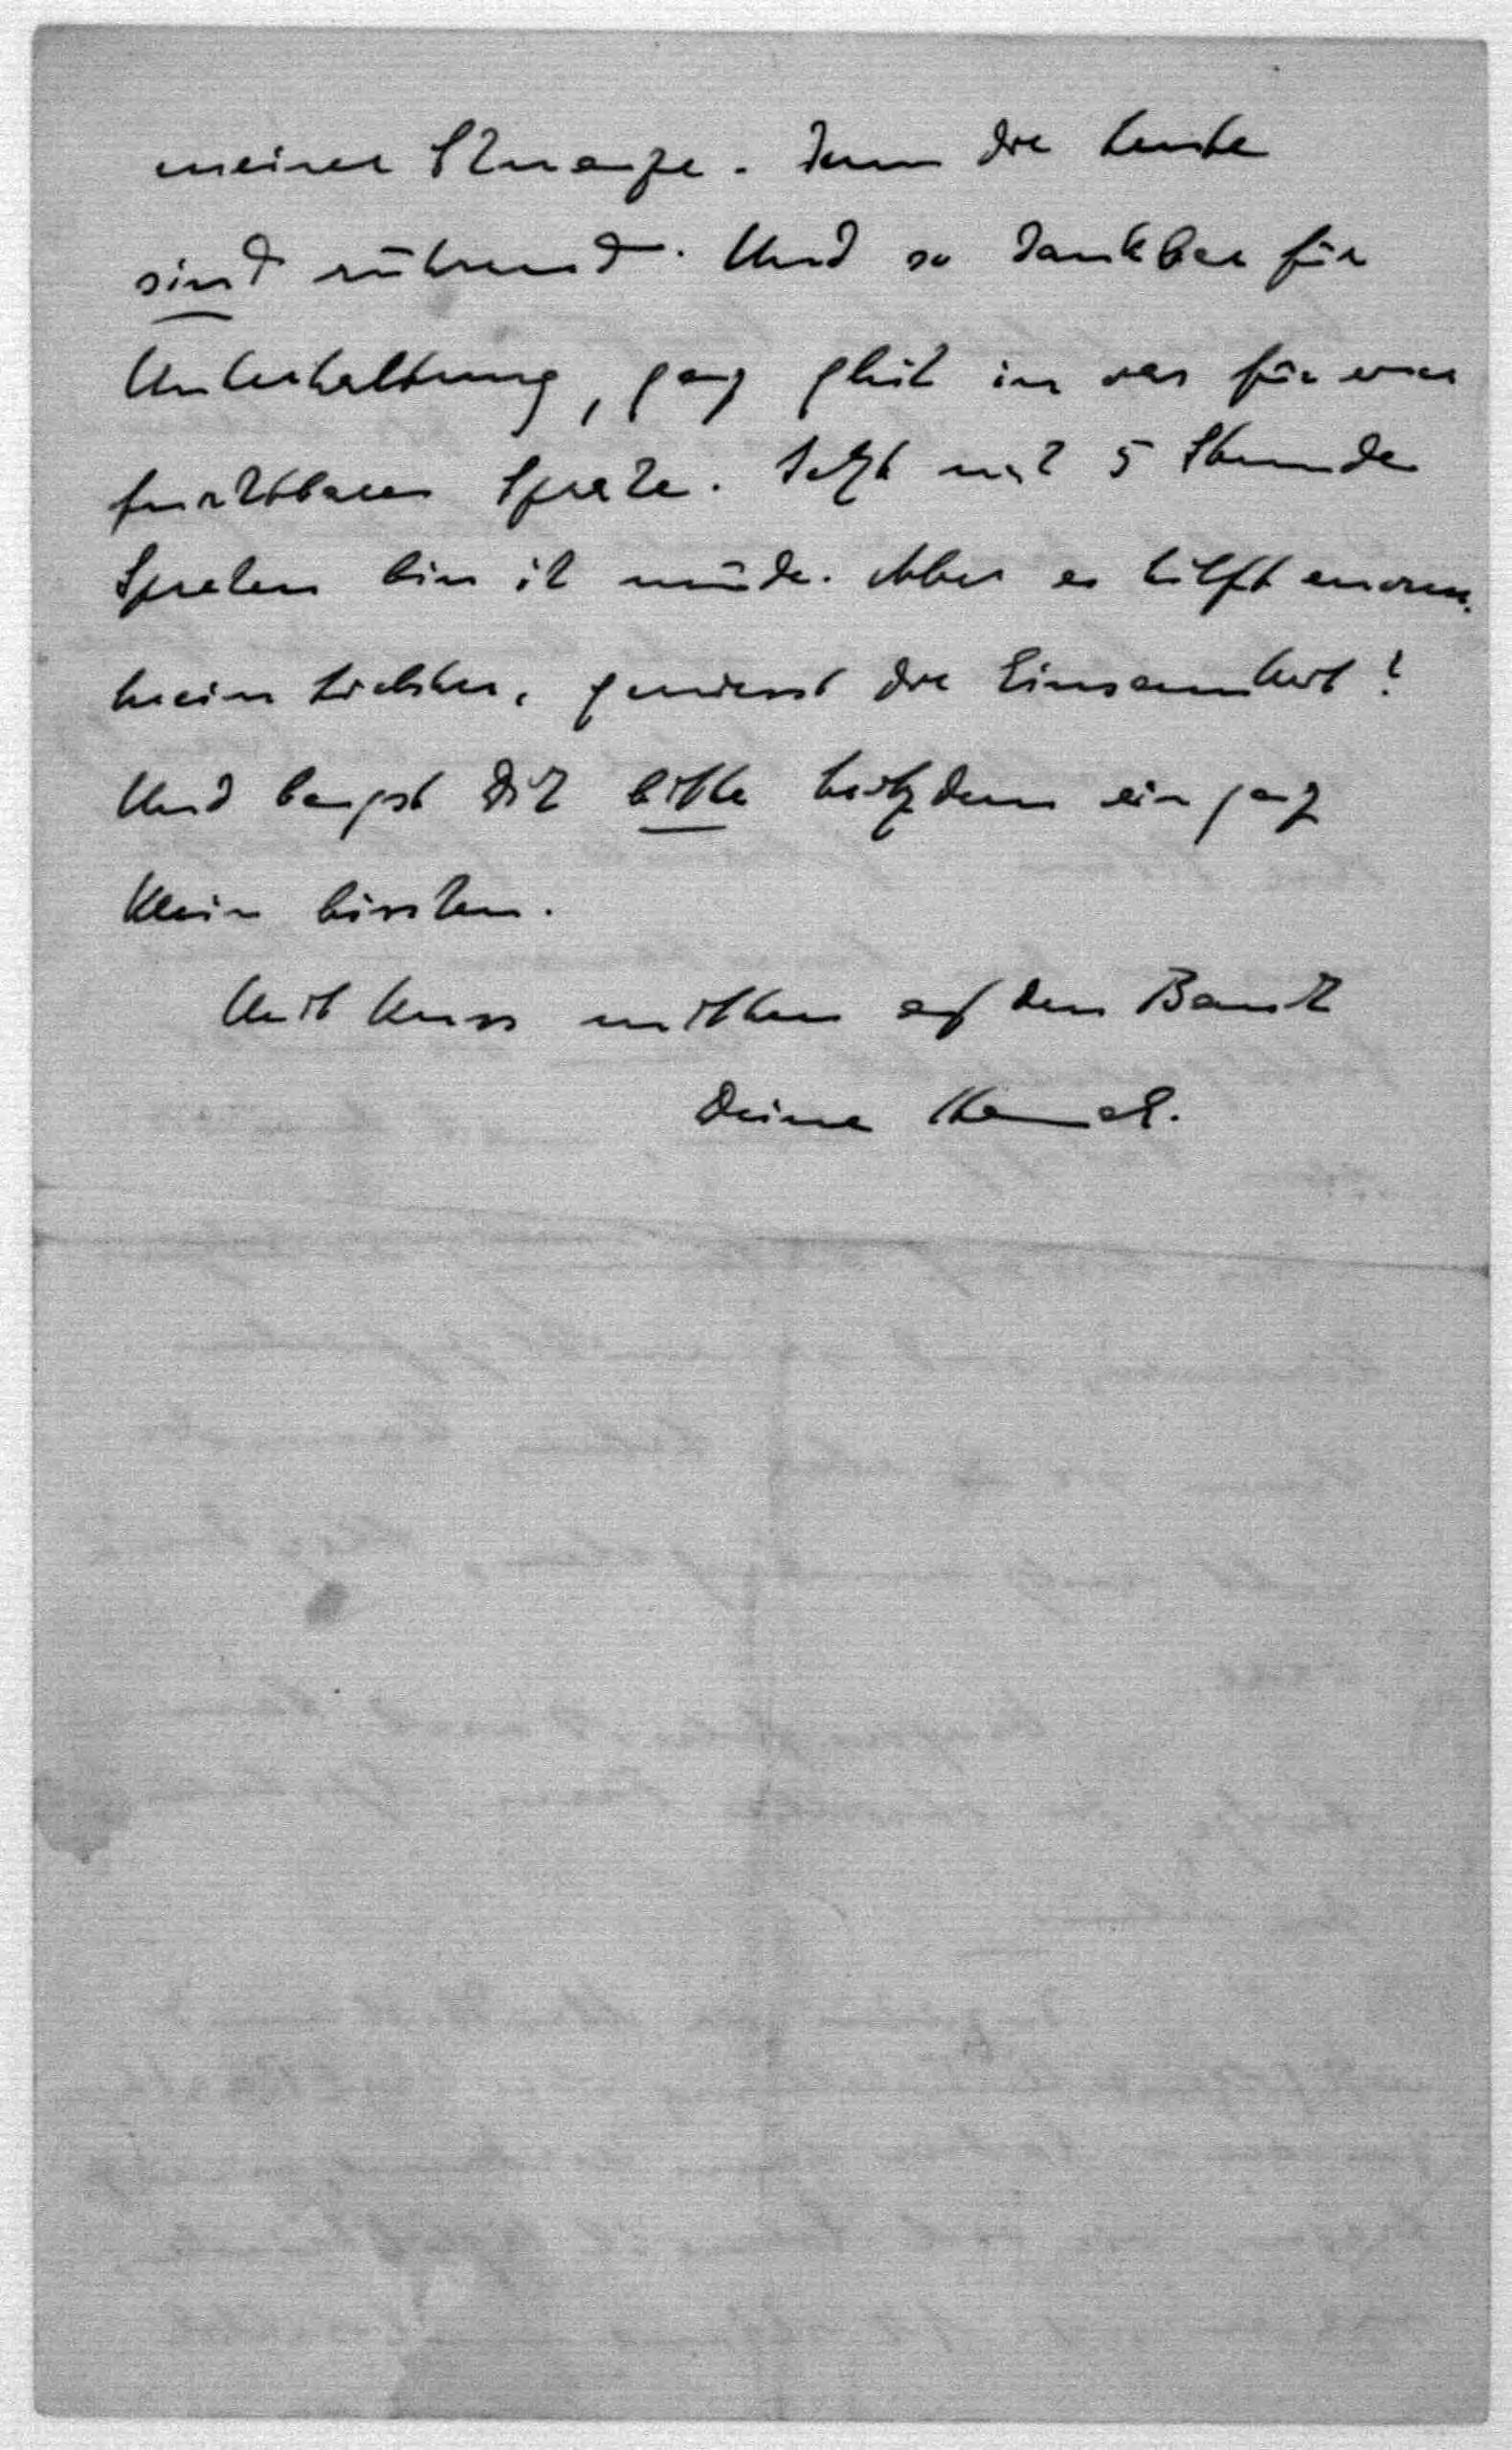 meiner Schnauze. Denn die Leute
sind rührend. Und so dankbar für
Unterhaltung, ganz gleich in was für einer
furchtbaren Sprache. Jetzt nach 5 Stunden
Sprechen bin ich müde. Aber es hilft enorm.
Mein Liebster, geniesst die Einsamkeit?
Und bangst Dich bitte trotzdem ein ganz
klein bisschen.
Mit Kuss mitten auf den Bauch
Deine